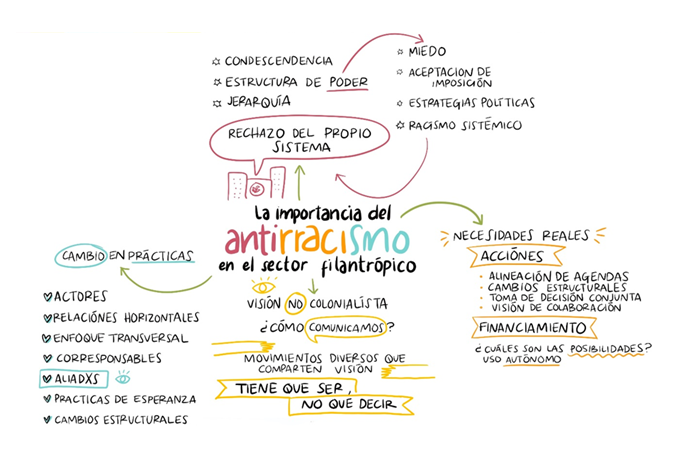 CONDESCENDENCIA
ESTRUCTURA DE PODER
JERARQUÍA
MIEDO
ACEPTACION DE
IMPOSICIÓN
ESTRATEGIAS POLÍTICAS
RACISMO SISTÉMICO
RECHAZO DEL PROPIO
SISTEMA
La importancia del
antirracismo
en el sector filantrópico
CAMBIO EN PRÁCTICAS
ACTORES
RELACIÓNES HORIZONTALES
ENFOQUE TRANSVERSAL
CORRESPONSABLES
ALIADXS
PRACTICAS DE ESPERANZA
CAMBIOS ESTRUCTURALES
VISIÓN NO COLONIALISTA
¿CÓMO COMUNICAMOS?
MOVIMIENTOS DIVERSOS QUE
COMPARTEN VISIÓN
TIENE QUE SER,
NO QUE DECIR
NECESIDADES REALES
ACCIÓNES
ALINEACIÓN DE AGENDAS
CAMBIOS ESTRUCTURALES
TOMA DE DECISIÓN CONJUNTA
VISIÓN DE COLABORACIÓN
FINANCIAMIENTO
¿CUÁLES SON LAS POSIBILIDADES?
USO AUTÓNOMO